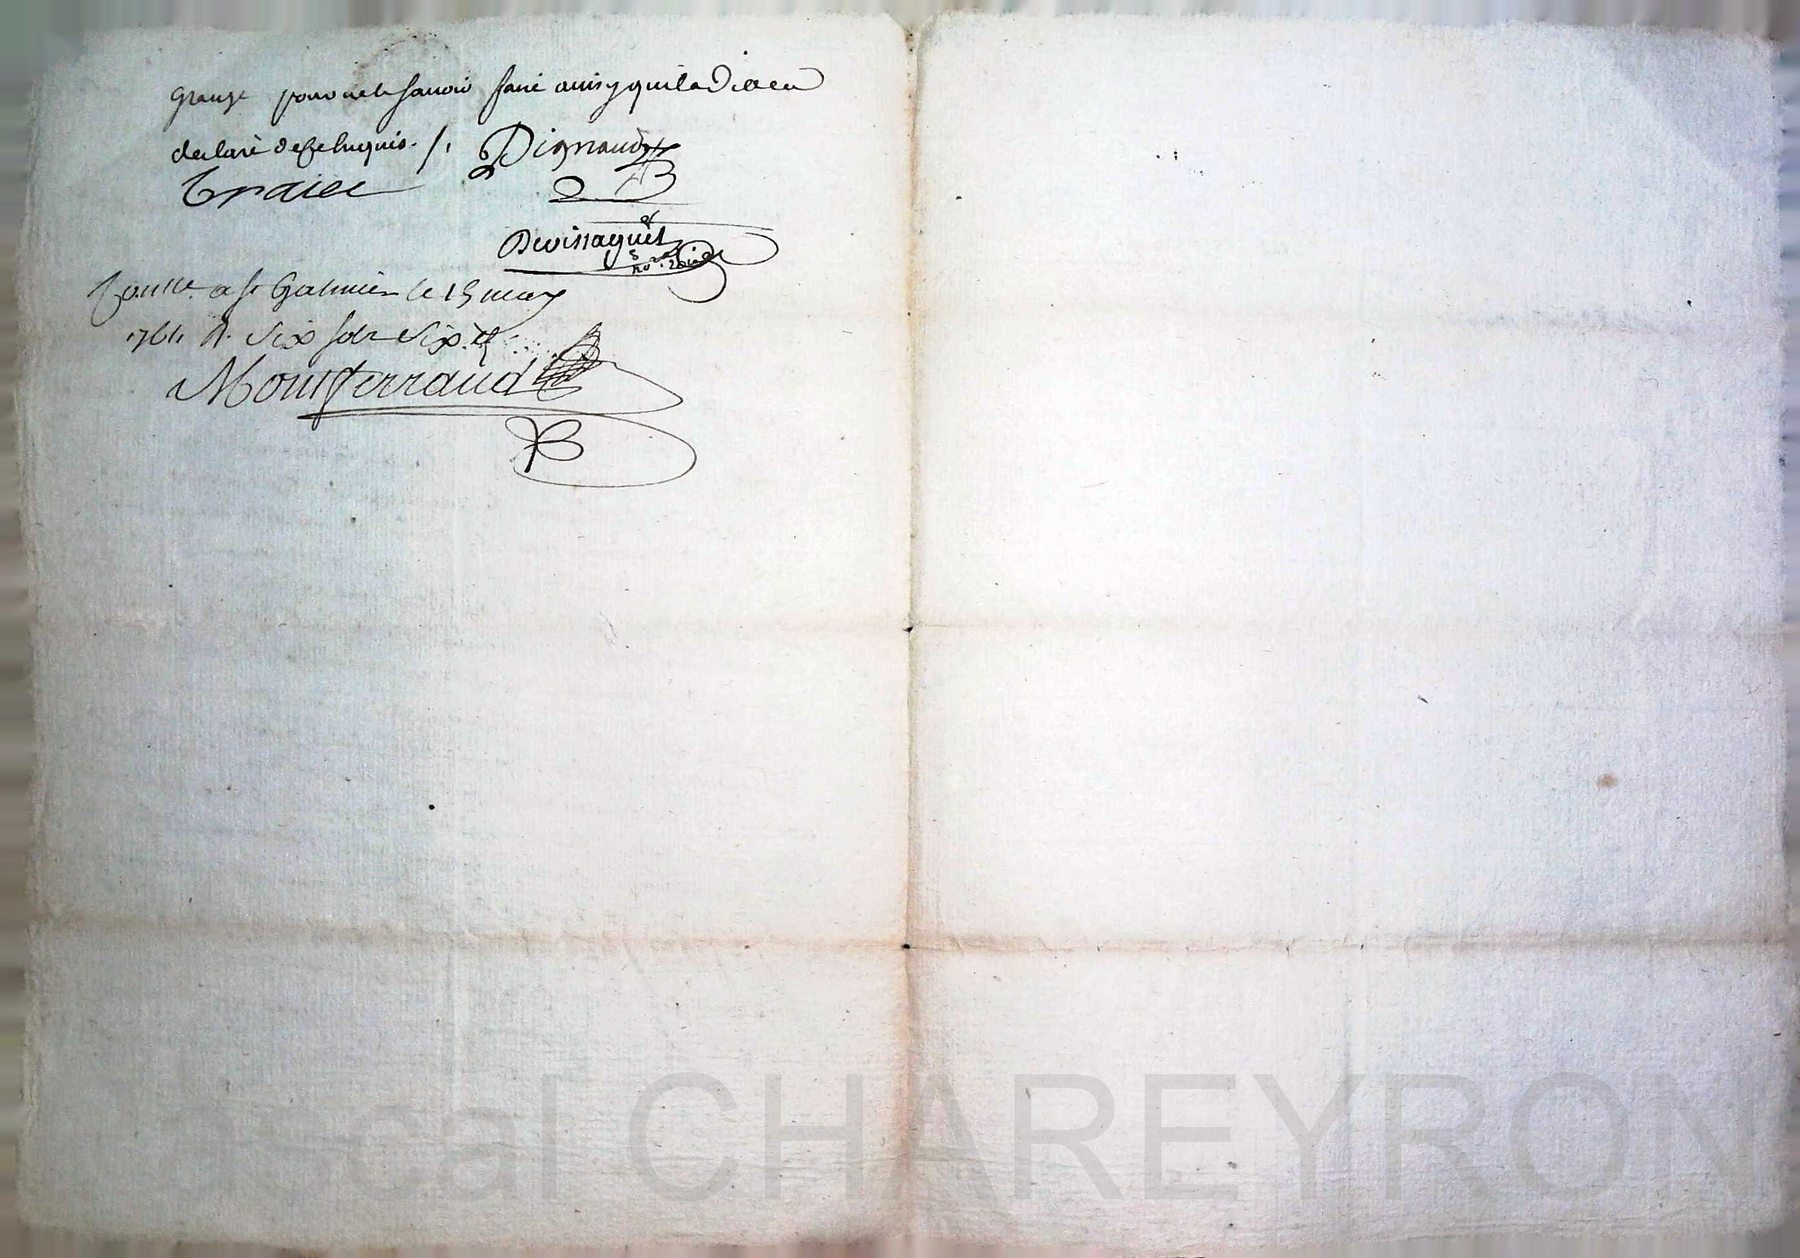 grange pour ne le savoir faire ainsy quil a dit et
declaré de ce enquis ./.
Dignaud
Devissaguet
no.re royal
Conlle. a st Galmier le 15 may
1761 R. Six sols Six d
Montferraud
Pascal CHAREYRON